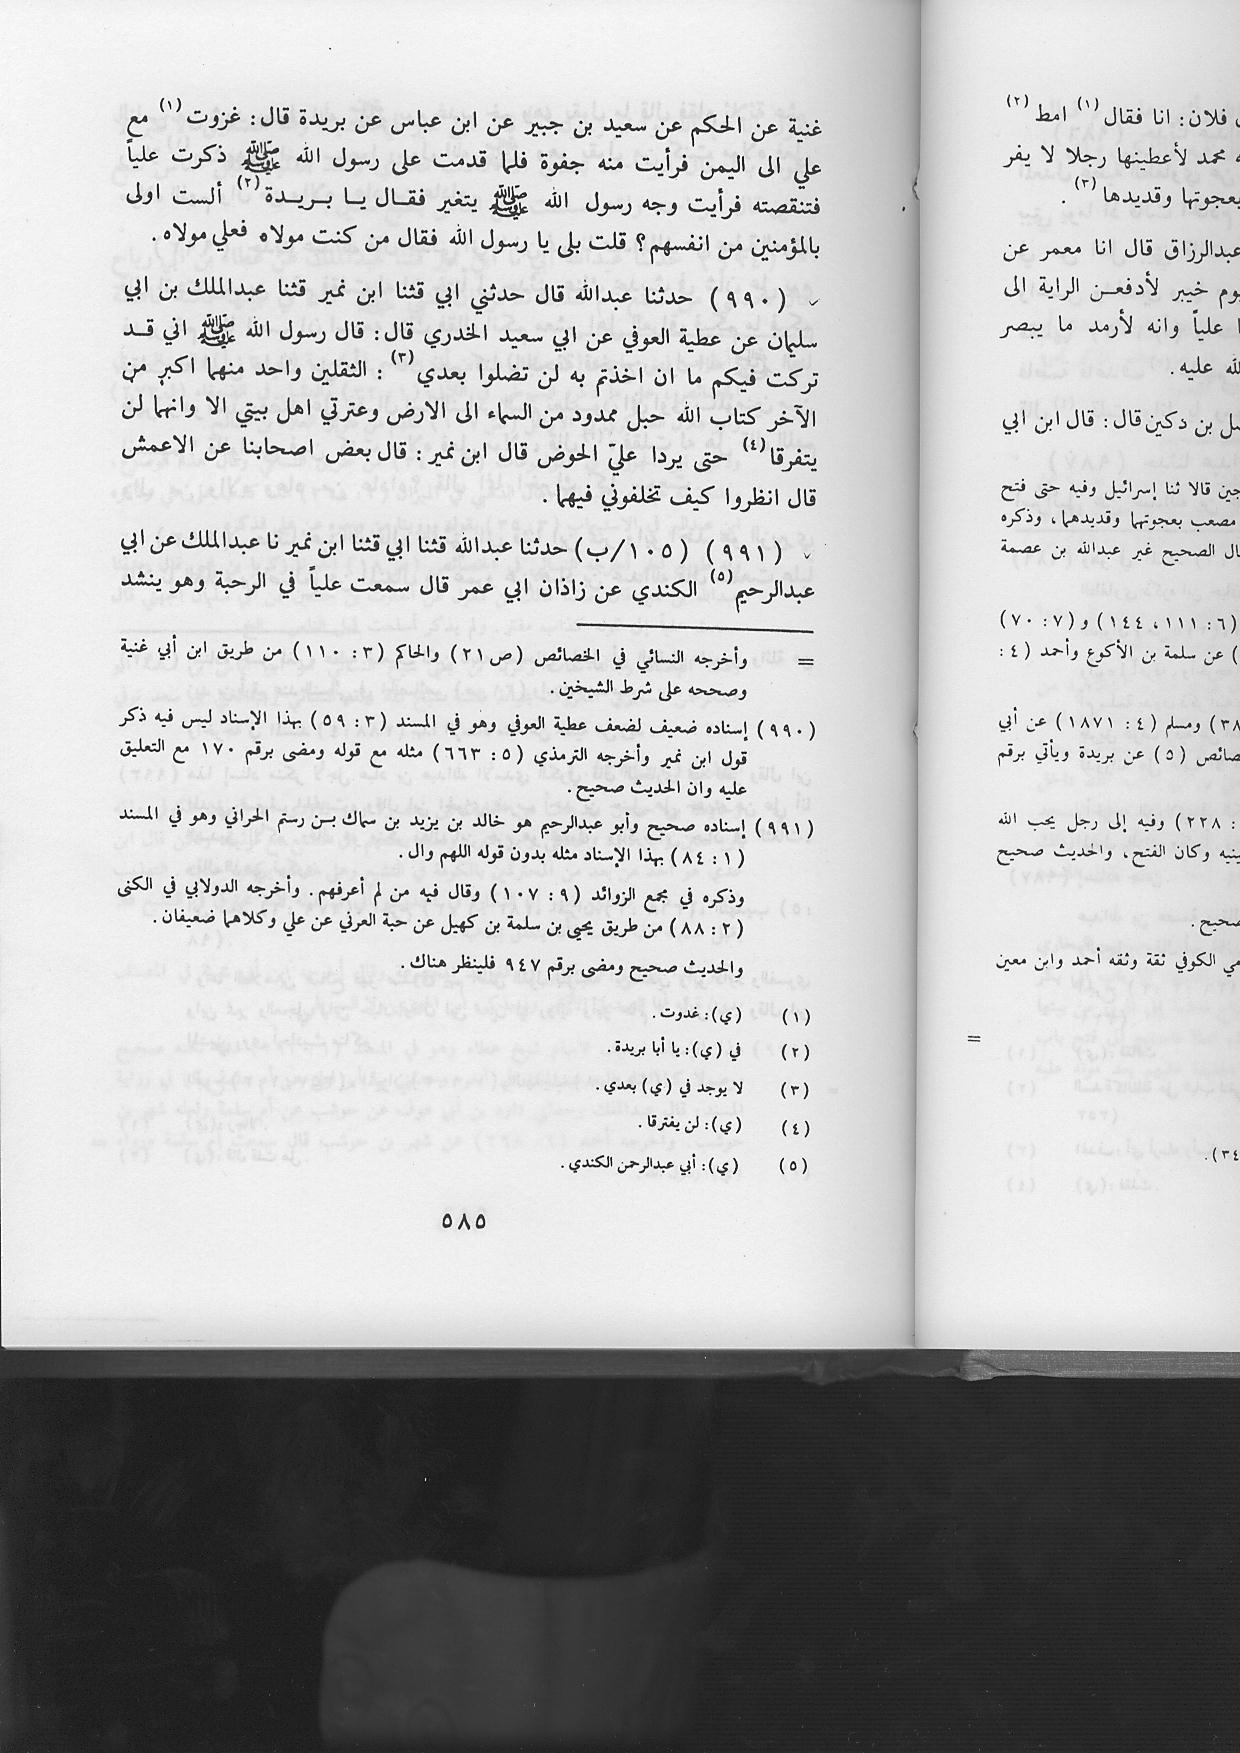 غنية عن الحكم عن سعيد بن جبير عن ابن عباس عن بريدة قال: غزوت(١) مع
علي الى اليمن فرأيت منه جفوة فلما قدمت على رسول الله ﷺ ذكرت علياً
فتنقصته فرأيت وجه رسول الله ﷺ يتغير فقال يا بريدة(٢) ألست اولى
بالمؤمنين من انفسهم؟ قلت بلى يا رسول الله فقال من كنت مولاه فعلي مولاه.
(٩٩٠) حدثنا عبدالله قال حدثني ابي قثنا ابن نمير قثنا عبدالملك بن ابي
سليمان عن عطية العوفي عن ابي سعيد الخدري قال: قال رسول الله ﷺ اني قد
تركت فيكم ما ان اخذتم به لن تضلوا بعدي(٣): الثقلين واحد منهما اكبر من
الآخر كتاب الله حبل ممدود من السماء الى الارض وعترتي اهل بيتي الا وانهما لن
يتفرقا(٤) حتى يردا عليّ الحوض قال ابن نمير: قال بعض اصحابنا عن الاعمش
قال انظروا كيف تخلفوني فيهما.
(٩٩١) (١٠٥/ب) حدثنا عبدالله قثنا ابي قثنا ابن نمير نا عبدالملك عن ابي
عبدالرحيم(٥) الكندي عن زاذان ابي عمر قال سمعت علياً في الرحبة وهو ينشد
= وأخرجه النسائي في الخصائص (ص٢١) والحاكم (٣: ١١٠) من طريق ابن أبي غنية
وصححه على شرط الشيخين.
(٩٩٠) إسناده ضعيف لضعف عطية العوفي وهو في المسند (٣: ٥٩) بهذا الإسناد ليس فيه ذكر
قول ابن نمير وأخرجه الترمذي (٥: ٦٦٣) مثله مع قوله ومضى برقم ١٧٠ مع التعليق
عليه وان الحديث صحيح.
(٩٩١) إسناده صحيح وأبو عبدالرحيم هو خالد بن يزيد بن سماك بن رستم الحراني وهو في المسند
(١: ٨٤) بهذا الإسناد مثله بدون قوله اللهم وال.
وذكره في مجمع الزوائد (٩: ١٠٧) وقال فيه من لم أعرفهم. وأخرجه الدولابي في الكنى
(٢: ٨٨) من طريق يحيى بن سلمة بن كهيل عن حبة العرني عن علي وكلاهما ضعيفان.
والحديث صحيح ومضى برقم ٩٤٧ فلينظر هناك.
(١) (ي): غدوت.
(٢) في (ي): يا أبا بريدة.
(٣) لا يوجد في (ي) بعدي.
(٤) (ي): لن يفترقا.
(٥) (ي): أبي عبدالرحمن الكندي.
٥٨٥
فلان: انا فقال(١) امط(٢)
محمد لأعطينها رجلا لا يفر
بعجوتها وقديدها(٣).
عبدالرزاق قال انا معمر عن
يوم خيبر لأدفعن الراية الى
علياً وانه لأرمد ما يبصر
الله عليه.
بن دكين قال: قال ابن ابي
قالا ثنا إسرائيل وفيه حتى فتح
مصعب بعجوتهما وقديدهما، وذكره
الصحيح غير عبدالله بن عصمة
(٦: ١١١، ١٤٤) و (٧: ٧٠)
) عن سلمة بن الأكوع وأحمد (٤:
ومسلم (٤: ١٨٧١) عن أبي
(٥) عن بريدة ويأتي برقم
: ٢٢٨) وفيه إلى رجل يحب الله
وكان الفتح، والحديث صحيح
صحيح.
الكوفي ثقة وثقه أحمد وابن معين
=
٣٤).